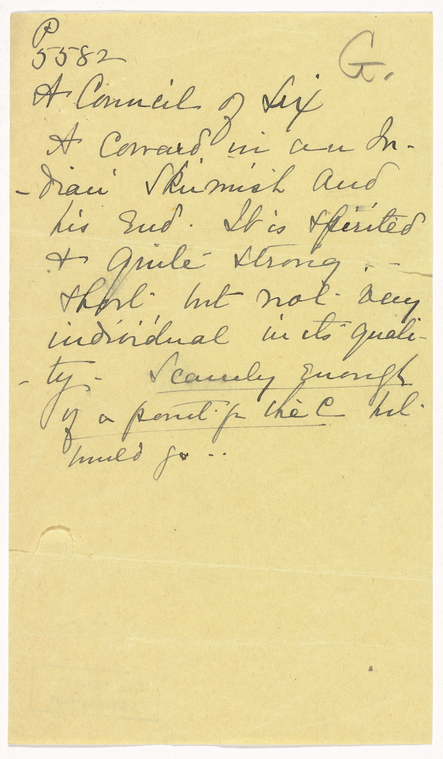 P
5582
G.
A Council of Six
A Coward in an In-
-dian Skirmish and
his End. It is spirited
& quite strong. -
short but not very
individual in its quali-
-ty - Scarcely Enough
of a point for the C but
would go ..